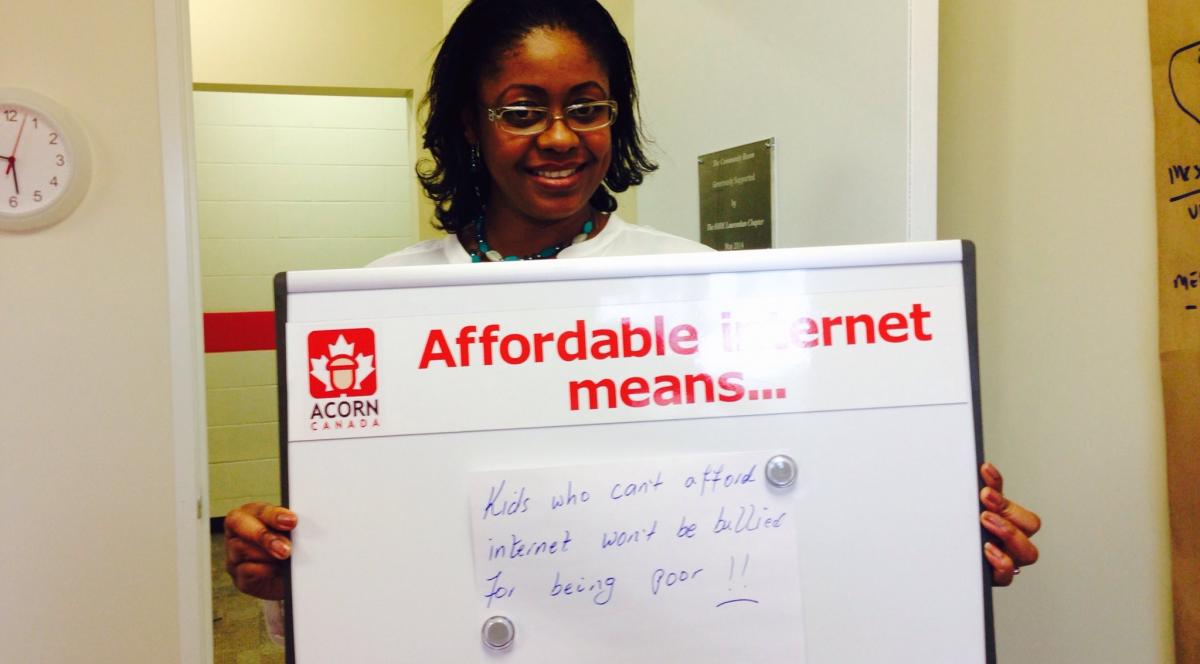 12
1
2
3
4
5
6
The Community Room
Generously Supported
by
May 2014
Affordable internet
means...
ACORN
CANADA
Kids who can't afford
internet won't be bullied
for being poor !!